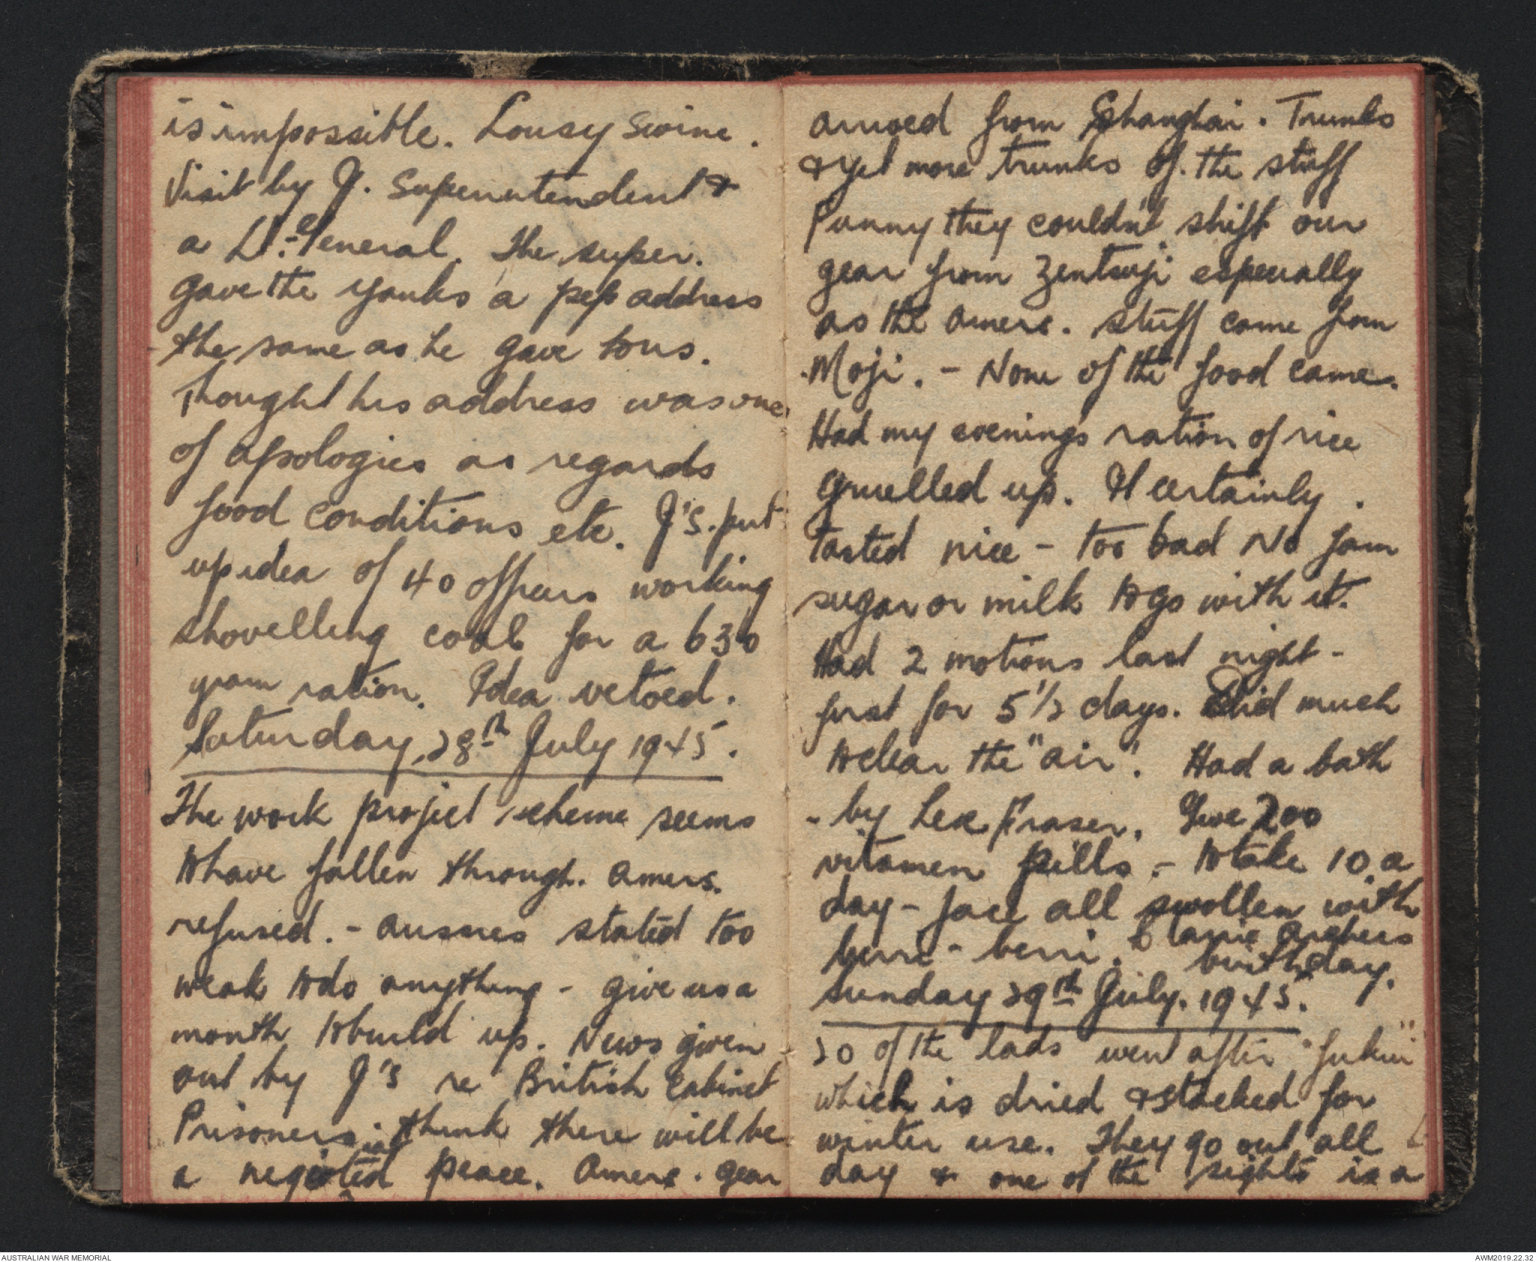 is impossible. Lousy swine.
Visit by J. Superintendent &
a Lt. General. The super.
gave the yanks a pep address
the same as he gave to us.
Thought his address was one
of apologies as regards
food conditions etc. J's. put
up idea of 40 officers working
shovelling coal for a 630
gram ration. Idea vetoed.
Saturday, 28th July 1945.
The work project scheme seems
to have fallen through. Amers.
refused. - Aussies stated too
weak to do anything - give us a
month to build up. News given
out by J's re British Cabinet
Prisoners think there will be
a negotiated peace. Amers. gear
arrived from Shanghai. Trunks
& yet more trunks of the stuff
Funny they couldn't shift our
gear from Zentsuji especially
as the Amers. stuff came from
Moji. - None of the food came.
Had my evenings ration of rice
gruelled up. It certainly
tasted nice - too bad No jam
sugar or milk to go with it.
Had 2 motions last night -
first for 5½ days. Did much
to clear the "air". Had a bath
- by Lex Fraser. Give 200
vitamen pills - to take 10 a
day - face all swollen with
berri - berri. Clarrie Archers
birthday.
Sunday 29th July. 1945.
20 of the lads went after "fukui"
which is dried & stacked for
winter use. They go out all
day & one of the sights is a
AUSTRALIAN WAR MEMORIAL
AWM2019.22.32